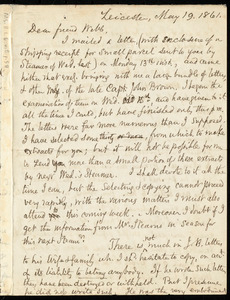 Leicester, May 19. 1861.
Dear friend Webb,
I mailed a letter (with enclosure of a
shipping receipt for small parcel sent to you by
Steamer of Wed. last) on Monday 13th inst., and came
hither that evening, bringing with me a large bundle of letters
of the late Capt. John Brown. I began the
examination of them on Wed. 15th, and have given to it
all the time I could, but have finished only
The letters were far more numerous than I supposed.
I have selected from which to make
extracts for you; but it will not be possible for me
to send you more than a small portion of these extracts
by next Wed.'s Steamer. I shall devote to it all the
time I can, but the selecting & copying cannot proceed
very rapidly, with the various matters I must also
attend to this coming week. Moreover I doubt if I
get the information from Mr. Stearns in season for
this next Steamer.
There is not much in J. B.'s letters
to his wife & family which I sh'd hesitate to copy, on acc't
of its liability to betray anybody. If he wrote such letters
they have been destroyed or withheld. But I presume
he did not write such. He was the very